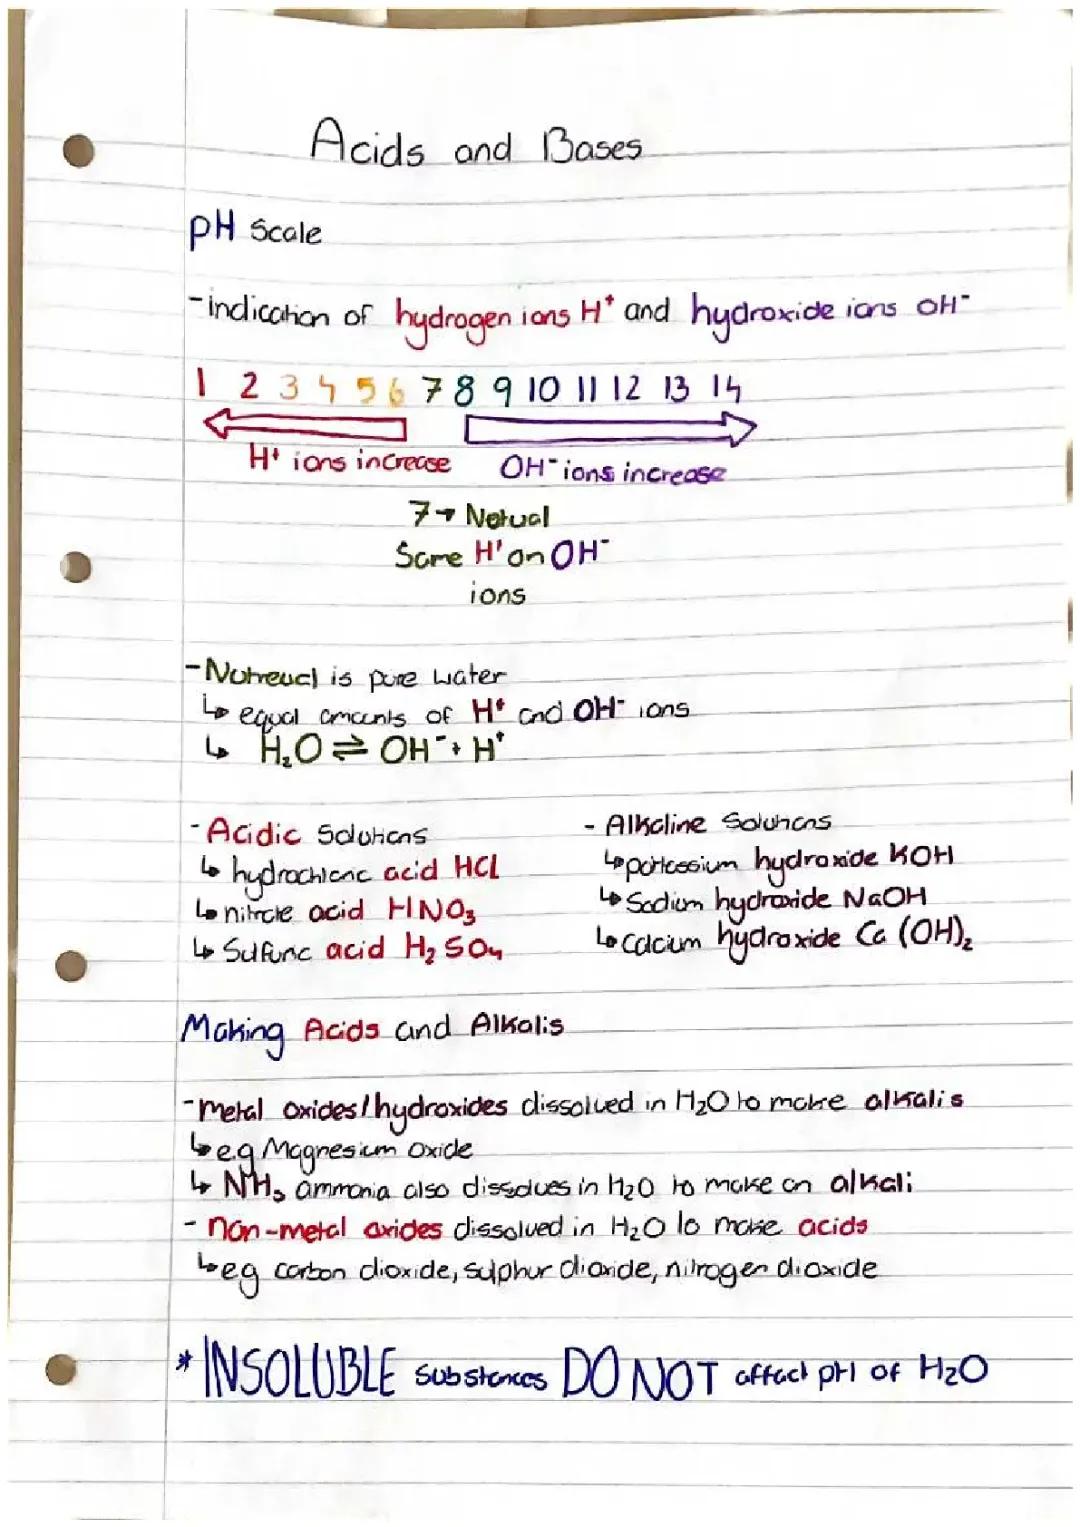 Acids and Bases
pH Scale
- indication of hydrogen ions H⁺ and hydroxide ions OH⁻
1 2 3 4 5 6 7 8 9 10 11 12 13 14
H⁺ ions increase OH⁻ ions increase
7 → Netual
Same H⁺ on OH⁻
ions
- Nutreual is pure water
↳ equal amounts of H⁺ and OH⁻ ions
↳ H₂O ⇌ OH⁻ + H⁺
- Acidic Solutions
↳ hydrochloric acid HCl
↳ nitric acid HNO₃
↳ Sulfuric acid H₂SO₄
- Alkaline Solutions
↳ portassium hydroxide KOH
↳ Sodium hydroxide NaOH
↳ Calcium hydroxide Ca (OH)₂
Making Acids and Alkalis
- metal oxides/hydroxides dissolved in H₂O to make alkalis
↳ eg Magnesium oxide
↳ NH₃ ammonia also dissolves in H₂O to make an alkali
- non-metal oxides dissolved in H₂O to make acids
↳ eg carbon dioxide, sulphur dioxide, nitrogen dioxide
* INSOLUBLE substances DO NOT affact pH of H₂O